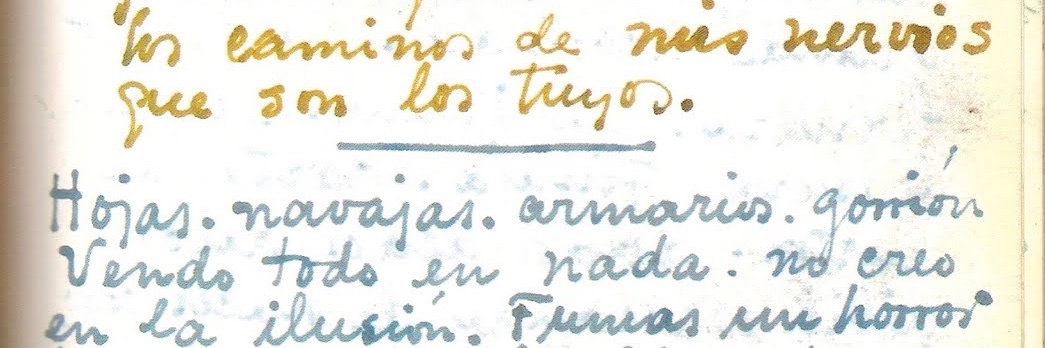 los caminos de mis nervios
que son los tuyos.
Hojas. navajas. armarios. gorrión
Vendo todo en nada. no creo
en la ilusión. Fumas un horror